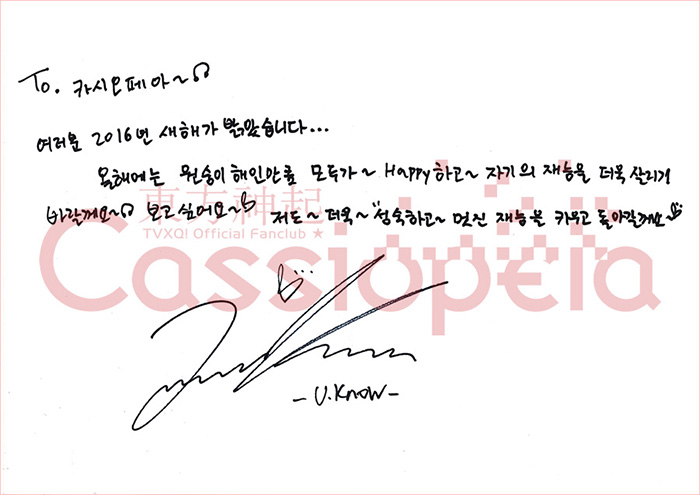 To. 카시오페아~
여러분 2016년 새해가 밝았습니다...
올해에는 원숭이해인만큼 모두가~ Happy하고~ 자기의 재능을 더욱 살리기
바랄게요~ 보고싶어요~ 저도~ 더욱~ 성숙하고~ 멋진 재능을 키우고 돌아갈게요~
東方神起
TVXQ! Official Fanclub ★
Cassiopeia
-U.Know-